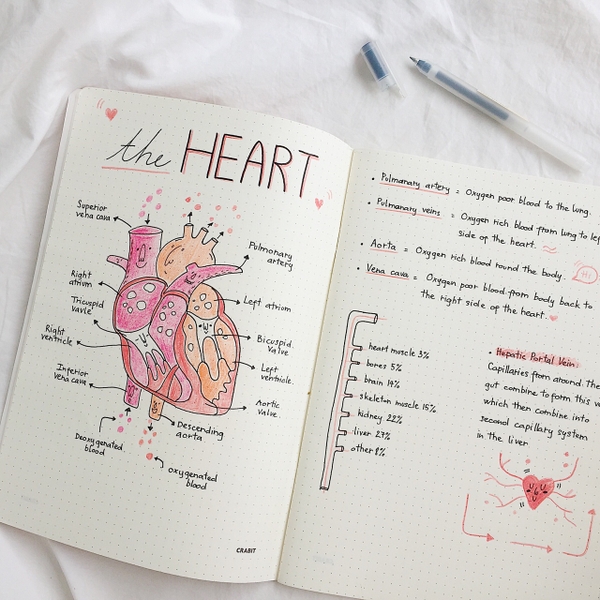 the HEART
Superior
vena cava
Pulmonary
artery
Right
atrium
Left atriom
Tricuspid
Right
ventricle
Bicuspid
valve
Left
ventricle
Inferior
vena cava
Aortic
valve
Descending
aorta
Deoxygenated
blood
oxygenated
blood
CRABIT
• Pulmanary artery = Oxygen poor blood to the lung.
• Pulmanary veins = Oxygen rich blood from lung to lef
side of the heart.
• Aorta = Oxygen rich blood round the body.
Hi
• Vena cava = Oxygen poor blood from body back to
the right side of the heart.
heart muscle 3%
bones 5%
brain 14%
skeleton muscle 15%
kidney 22%
liver 27%
other 8%
• Hepatic Portal Vein:
Capillaries from around. The
gut combine to form this v
which then combine into
second capillary system
in the liver